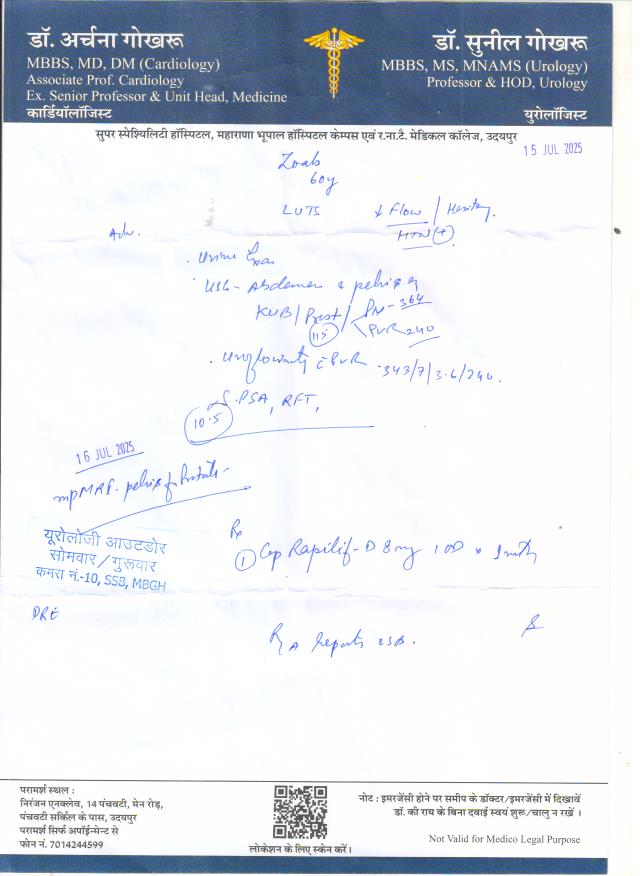 डॉ. अर्चना गोखरू
MBBS, MD, DM (Cardiology)
Associate Prof. Cardiology
Ex. Senior Professor & Unit Head, Medicine
कार्डियॉलॉजिस्ट
डॉ. सुनील गोखरू
MBBS, MS, MNAMS (Urology)
Professor & HOD, Urology
युरोलॉजिस्ट
सुपर स्पेशियलिटी हॉस्पिटल, महाराणा भूपाल हॉस्पिटल केम्पस एवं र.ना.टै. मेडिकल कॉलेज, उदयपुर
15 JUL 2025
60y
LUTS ↓ Flow / Hesitancy
HTN +
Adv.
Urine Exa
USG - Abdomen & pelvis
KUB / Prost / PV - 364
115 PVR 240
Uroflowmetry c PVR - 343/7/3.6/240.
S. PSA, RFT,
10.5
16 JUL 2025
mpMRI pelvis Prostate
यूरोलोजी आउटडोर
सोमवार / गुरूवार
कमरा नं.-10, SSB, MBGH
Rx
1 Cap Rapilif-D 8mg 1 OD x
DRE
R A reports
परामर्श स्थल :
निरंजन एनक्लेव, 14 पंचवटी, मेन रोड़,
पंचवटी सर्किल के पास, उदयपुर
परामर्श सिर्फ अपॉईन्मेन्ट से
फोन नं. 7014244599
लोकेशन के लिए स्केन करें।
नोट : इमरजेंसी होने पर समीप के डॉक्टर/इमरजेंसी में दिखावें
डॉ. की राय के बिना दवाई स्वयं शुरू/चालु न रखें ।
Not Valid for Medico Legal Purpose